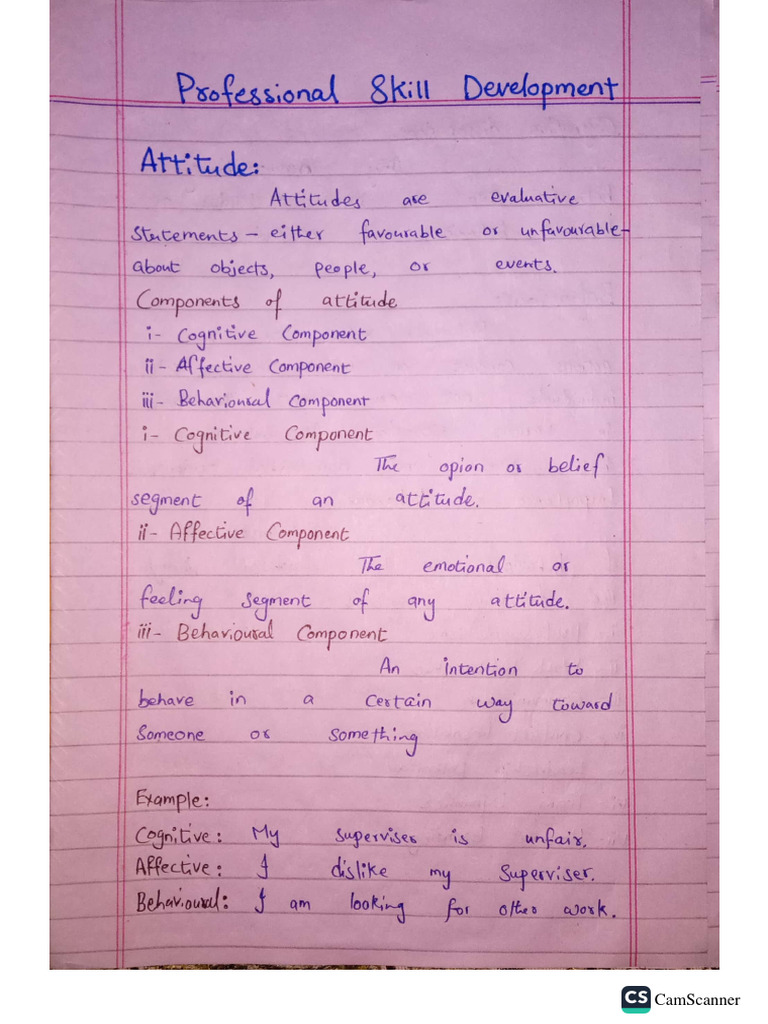 Professional Skill Development
Attitude:
Attitudes are evaluative
statements – either favourable or unfavourable–
about objects, people, or events.
Components of attitude
i- Cognitive Component
ii- Affective Component
iii- Behavioural Component
i- Cognitive Component
The opion or belief
segment of an attitude.
ii- Affective Component
The emotional or
feeling segment of any attitude.
iii- Behavioural Component
An intention to
behave in a certain way toward
Someone or something
Example:
Cognitive: My superviser is unfair.
Affective: I dislike my Superviser.
Behavioural: I am looking for other work.
CS CamScanner